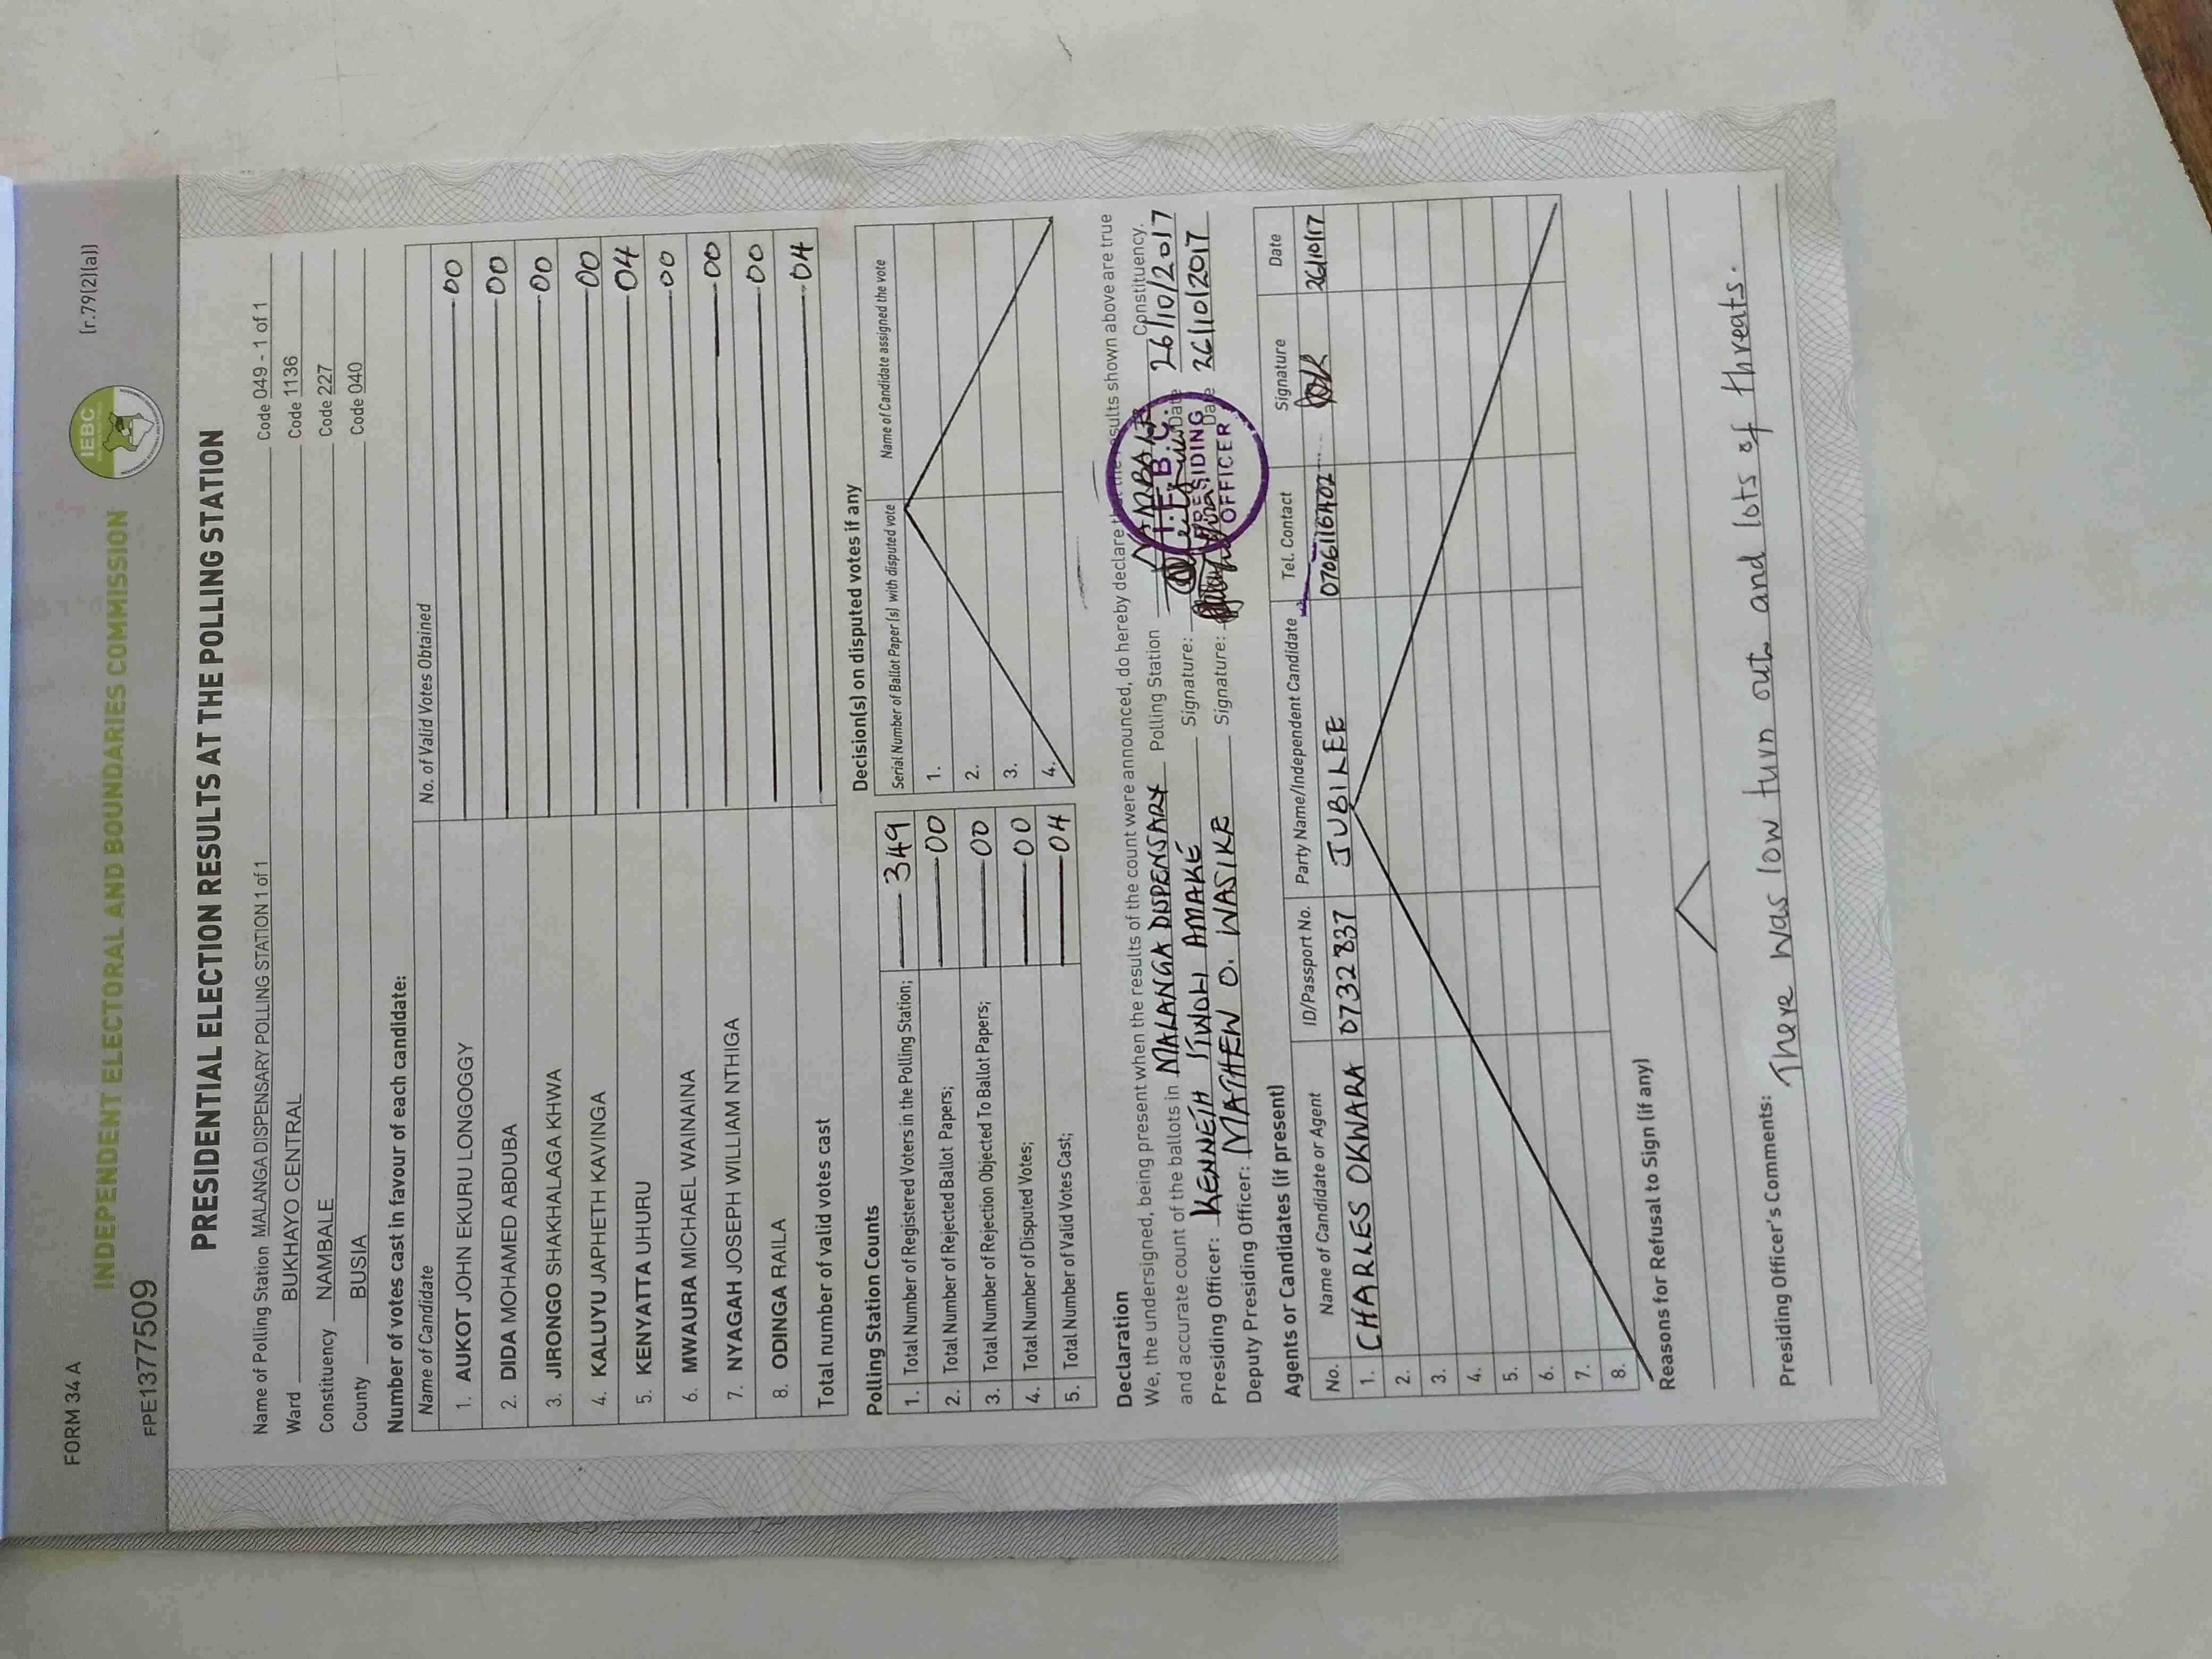 FORM 34 A
[r.79(2)(a)]
INDEPENDENT ELECTORAL AND BOUNDARIES COMMISSION
IEBC
FPE1377509
PRESIDENTIAL ELECTION RESULTS AT THE POLLING STATION
Name of Polling Station MALANGA DISPENSARY POLLING STATION 1 of 1 Code 049 - 1 of 1
Ward BUKHAYO CENTRAL Code 1136
Constituency NAMBALE Code 227
County BUSIA Code 040
Number of votes cast in favour of each candidate:
Name of Candidate No. of Valid Votes Obtained
1. AUKOT JOHN EKURU LONGOGGY 00
2. DIDA MOHAMED ABDUBA 00
3. JIRONGO SHAKHALAGA KHWA 00
4. KALUYU JAPHETH KAVINGA 00
5. KENYATTA UHURU 04
6. MWAURA MICHAEL WAINAINA 00
7. NYAGAH JOSEPH WILLIAM NTHIGA 00
8. ODINGA RAILA 00
Total number of valid votes cast 04
Polling Station Counts
1. Total Number of Registered Voters in the Polling Station; 349
2. Total Number of Rejected Ballot Papers; 00
3. Total Number of Rejection Objected To Ballot Papers; 00
4. Total Number of Disputed Votes; 00
5. Total Number of Valid Votes Cast; 04
Decision(s) on disputed votes if any
Serial Number of Ballot Paper (s) with disputed vote Name of Candidate assigned the vote
1.
2.
3.
4.
Declaration
We, the undersigned, being present when the results of the count were announced, do hereby declare that the results shown above are true
and accurate count of the ballots in MALANGA DISPENSARY Polling Station NAMBALE Constituency.
Presiding Officer: KENNETH AMAKE Signature: Date 26/10/2017
Deputy Presiding Officer: MATHEW O. WASIKE Signature: Date 26/10/2017
I.E.B.C.
PRESIDING
OFFICER
Agents or Candidates (if present)
No. Name of Candidate or Agent ID/Passport No. Party Name/Independent Candidate Tel. Contact Signature Date
1. CHARLES OKWARA 07328837 JUBILEE 0706116402 26/10/17
2.
3.
4.
5.
6.
7.
8.
Reasons for Refusal to Sign (if any)
Presiding Officer's Comments: There was low turn out and lots of threats.